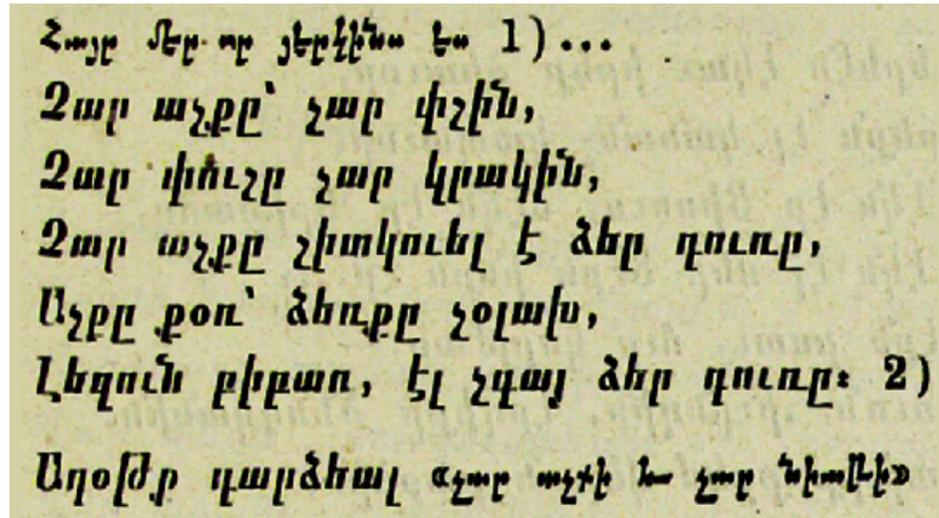 Հայր մեր որ յերկինս ես 1)...
Չար աչքը՝ չար փշին,
Չար փուշը չար կրակին,
Չար աչքը շիտկուել է ձեր դուռը,
Աչքը քօռ՝ ձեռքը չօլախ,
Լեզուն բիբառ, էլ չգայ ձեր դուռը։ 2)
Աղօթք դարձեալ «չար աչքի եւ չար